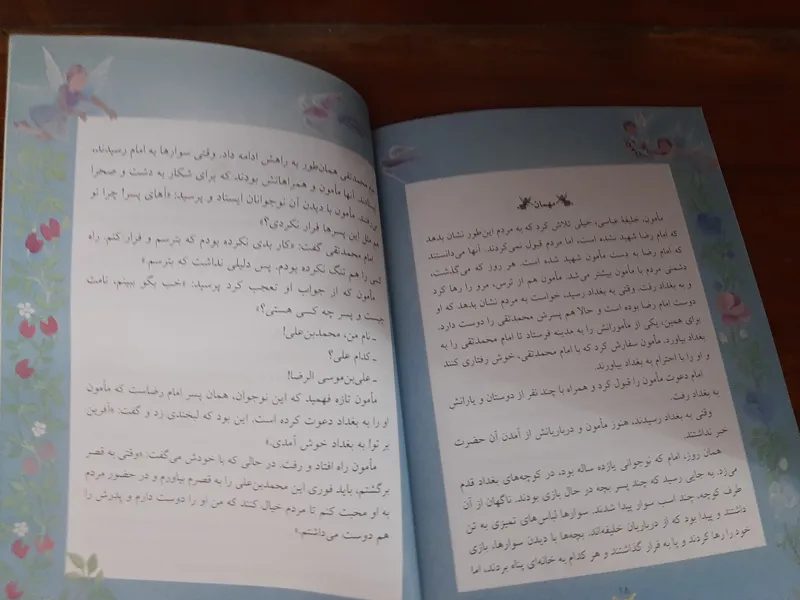 مهمان
مأمون، خلیفهٔ عباسی، خیلی تلاش کرد که به مردم این‌طور نشان بدهد
که امام رضا شهید نشده است، اما مردم قبول نمی‌کردند. آنها می‌دانستند
که امام رضا به دست مأمون شهید شده است. هر روز که می‌گذشت،
دشمنی مردم با مأمون بیشتر می‌شد. مأمون هم از ترس، مرو را رها کرد
و به بغداد رفت. وقتی به بغداد رسید، خواست به مردم نشان بدهد که او
دوست امام رضا بوده است و حالا هم پسرش محمدتقی را دوست دارد.
برای همین، یکی از مأمورانش را به مدینه فرستاد تا امام محمدتقی را به
بغداد بیاورد. مأمون سفارش کرد که با امام محمدتقی، خوش رفتاری کنند
و او را با احترام به بغداد بیاورند.
امام دعوت مأمون را قبول کرد و همراه با چند نفر از دوستان و یارانش
به بغداد رفت.
وقتی به بغداد رسیدند، هنوز مأمون و درباریانش از آمدن آن حضرت
خبر نداشتند.
همان روز، امام که نوجوانی یازده ساله بود، در کوچه‌های بغداد قدم
می‌زد. به جایی رسید که چند پسر بچه در حال بازی بودند. ناگهان از آن
طرف کوچه، چند اسب سوار پیدا شدند. سوارها لباس‌های تمیزی به تن
داشتند و پیدا بود که از درباریان خلیفه‌اند. بچه‌ها با دیدن سوارها، بازی
خود را رها کردند و پا به فرار گذاشتند و هر کدام به خانه‌ای پناه بردند، اما
۲۸
محمدتقی همان‌طور به راهش ادامه داد. وقتی سوارها به امام رسیدند،
آنها مأمون و همراهانش بودند که برای شکار به دشت و صحرا
مأمون با دیدن آن نوجوانان ایستاد و پرسید: «آهای پسر! چرا تو
هم مثل این پسرها فرار نکردی؟»
امام محمدتقی گفت: «کار بدی نکرده بودم که بترسم و فرار کنم. راه
کسی را هم تنگ نکرده بودم. پس دلیلی نداشت که بترسم.»
مأمون که از جواب او تعجب کرد پرسید: «خب بگو ببینم، نامت
چیست و پسر چه کسی هستی؟»
ـ نام من، محمدبن‌علی!
ـ کدام علی؟
ـ علی‌بن‌موسی الرضا!
مأمون تازه فهمید که این نوجوان، همان پسر امام رضاست که مأمون
او را به بغداد دعوت کرده است. این بود که لبخندی زد و گفت: «آفرین
بر تو! به بغداد خوش آمدی.»
مأمون راه افتاد و رفت. در حالی که با خودش می‌گفت: «وقتی به قصر
برگشتم، باید فوری این محمدبن‌علی را به قصرم بیاورم و در حضور مردم
به او محبت کنم تا مردم خیال کنند که من او را دوست دارم و پدرش را
هم دوست می‌داشتم.»